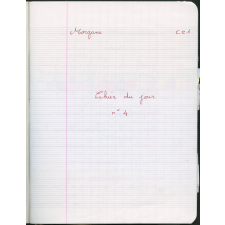 Morgane CE1
Cahier du jour
n° 4